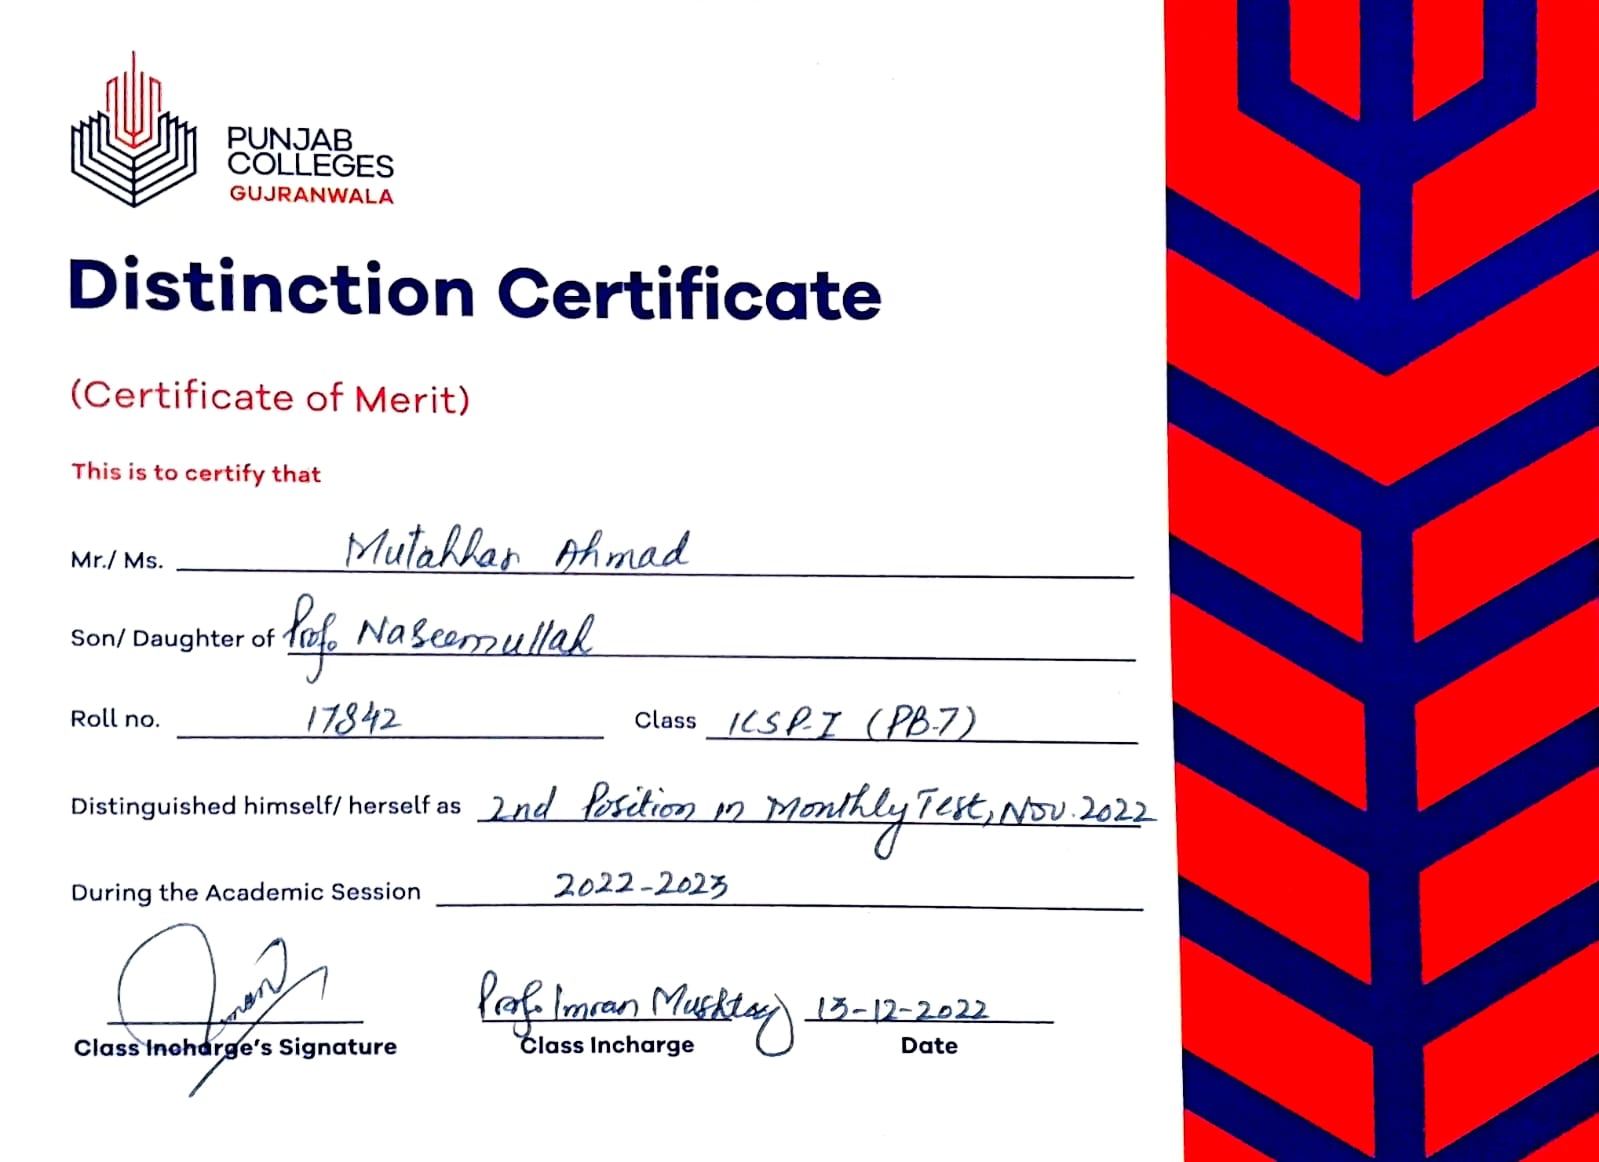 PUNJAB
COLLEGES
GUJRANWALA
Distinction Certificate
(Certificate of Merit)
This is to certify that
Mr./ Ms. Mutahhar Ahmad
Son/ Daughter of Prof. Naseemullah
Roll no. 17842 Class ICSP-I (PB-7)
Distinguished himself/ herself as 2nd Position in Monthly Test, Nov. 2022
During the Academic Session 2022-2023
Prof. Imran Mushtaq 13-12-2022
Class Incharge's Signature Class Incharge Date